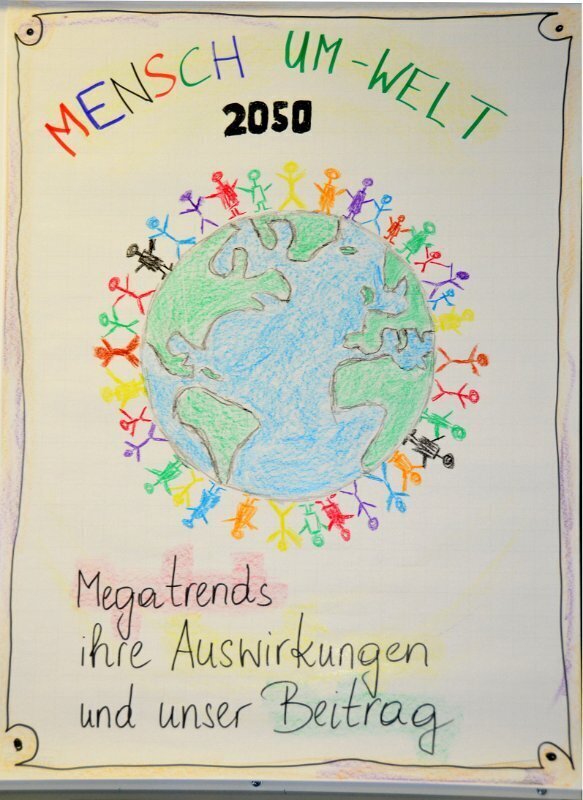 MENSCH UM-WELT
2050
Megatrends
ihre Auswirkungen
und unser Beitrag